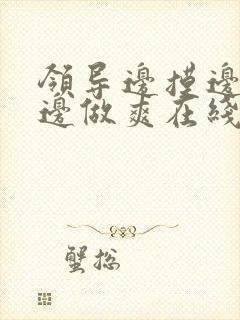 領导邊摸邊
邊做爽在綫
蟹总